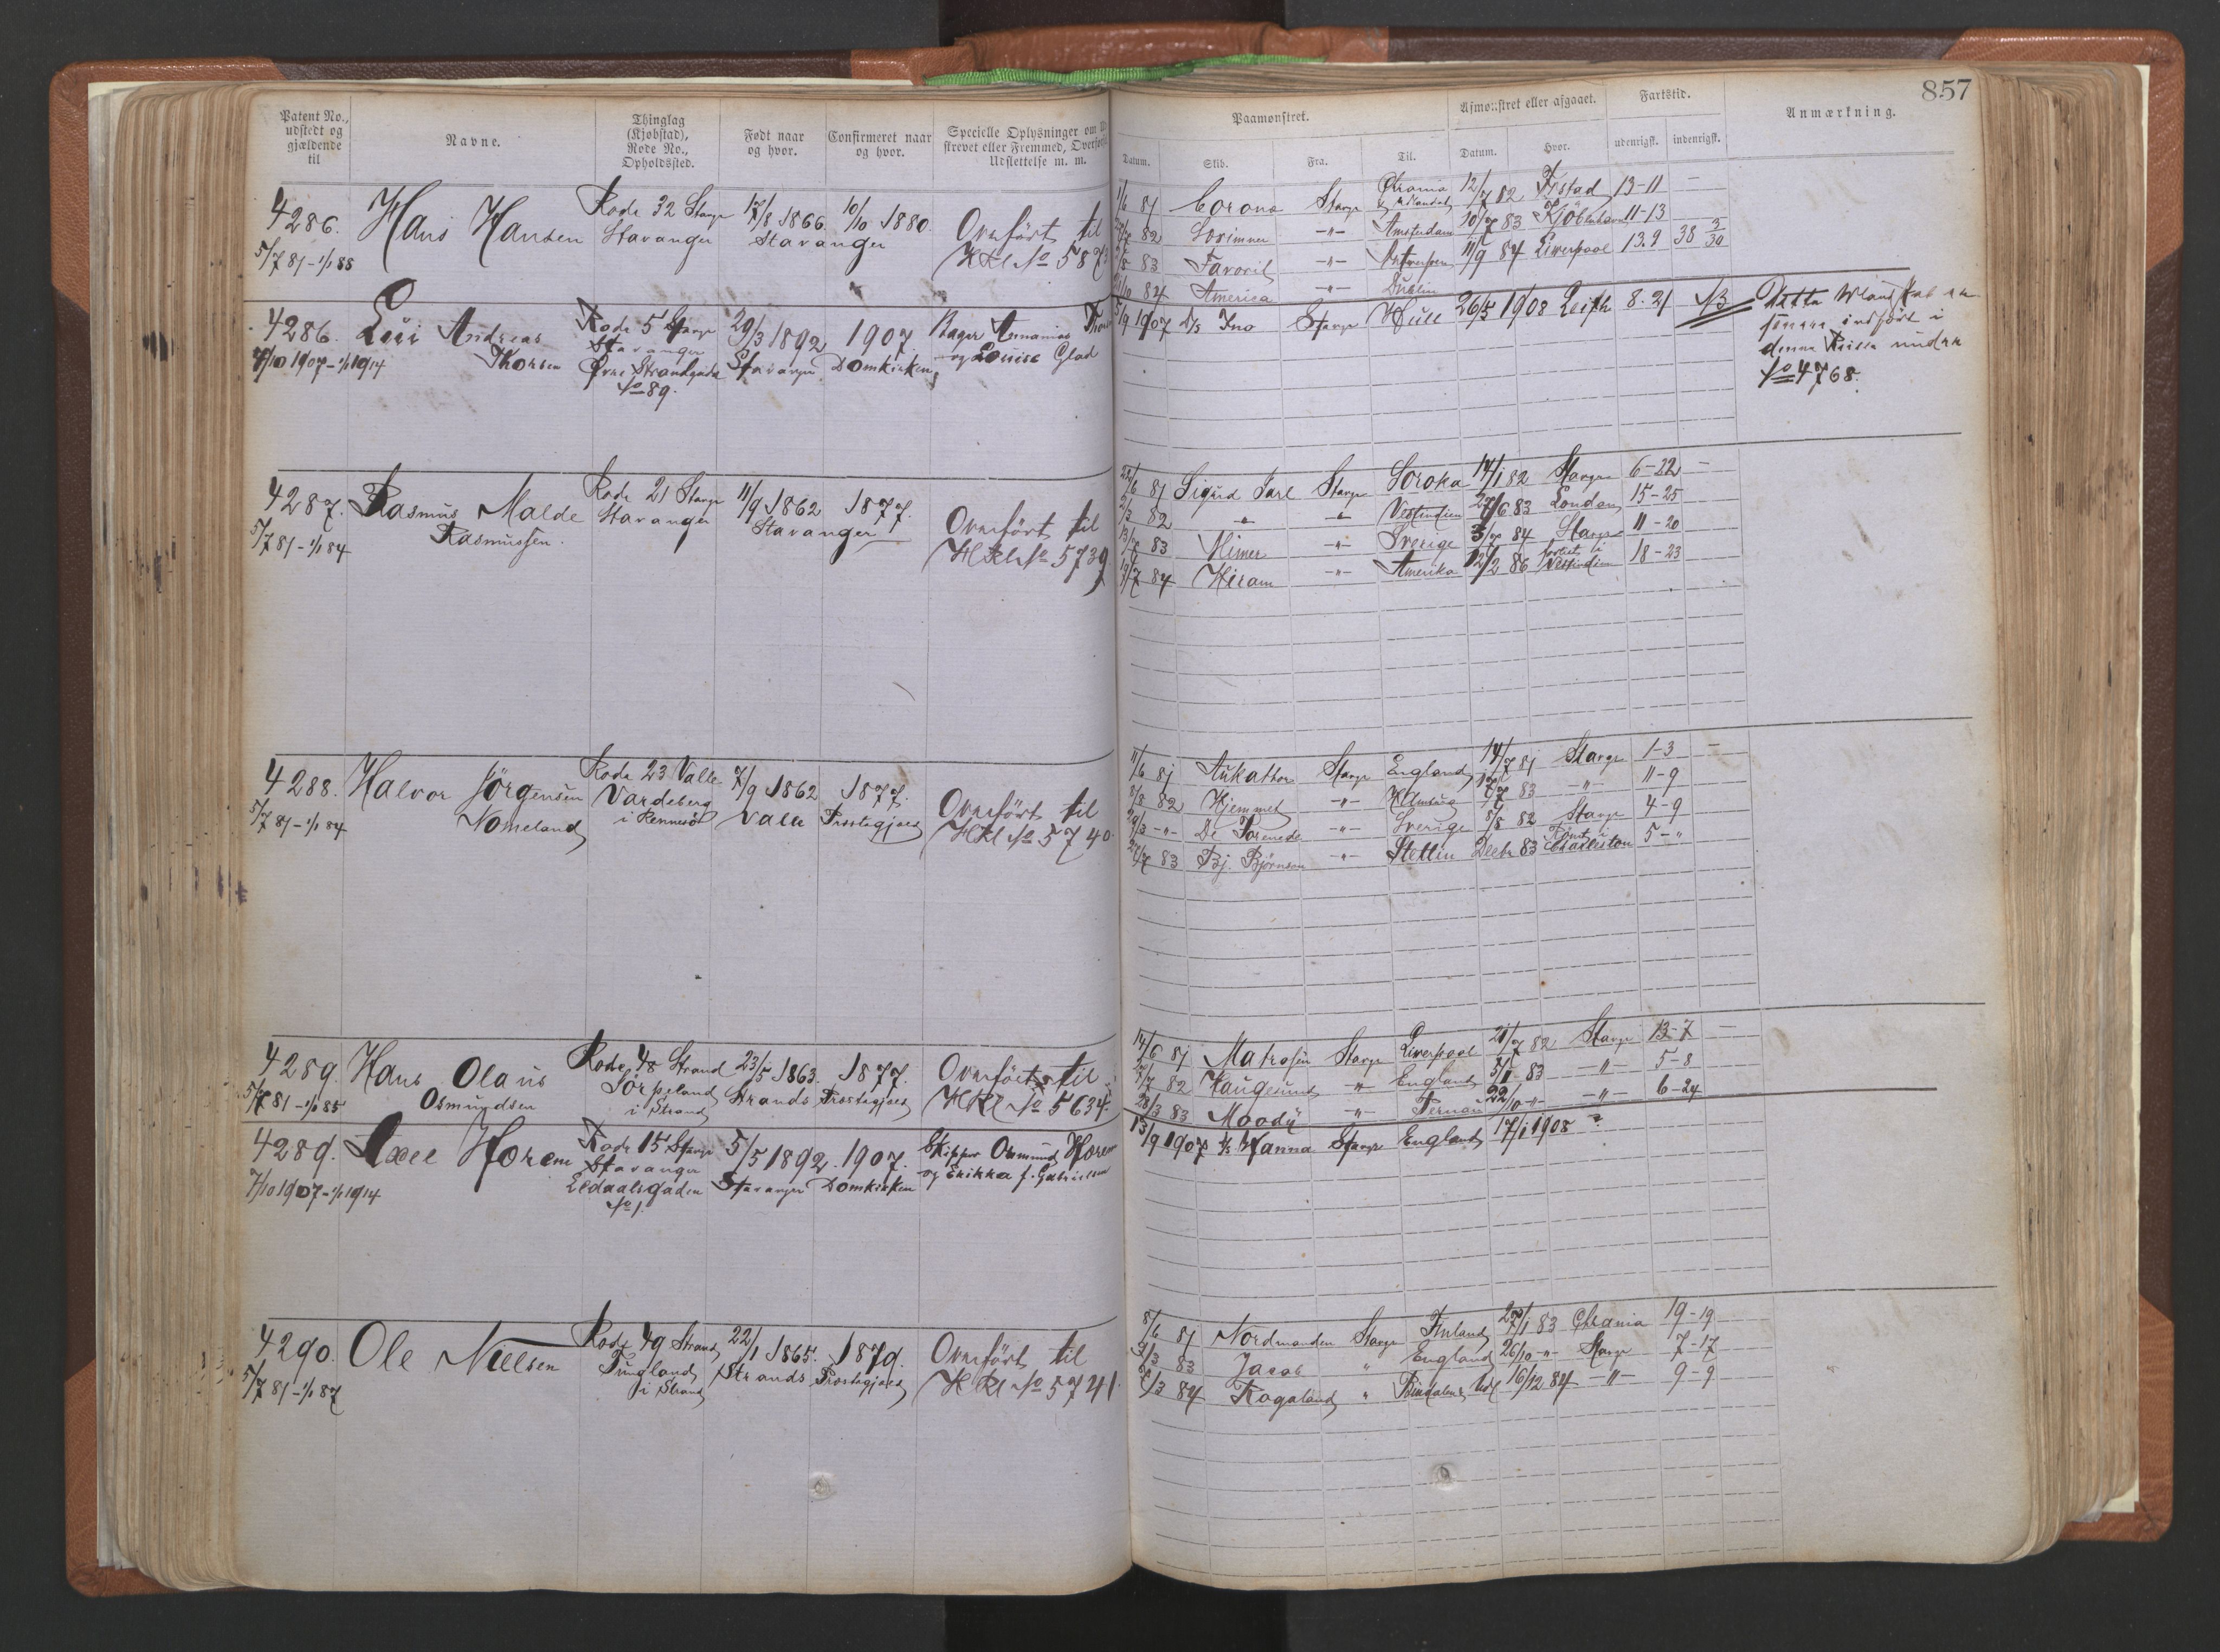 857
Patent No., udstedt og gjældende til
Navne.
Thinglag (Kjøbstad), Rode No., Opholdssted.
Født naar og hvor.
Confirmeret naar og hvor.
Specielle Oplysninger om
strevet eller Fremmed, Overført
Udslettelse m. m.
Paamønstret.
Afmønstret eller afgaaet.
Fartstid.
Anmærkning.
Datum.
Skib.
Fra.
Til.
Datum.
Hvor.
udenrigsk.
indenrigsk.
4286. Hans Hansen Rode 32 Stavgr 17/8 1866. 10/10 1880. Overført til
5/7 81-1/1 88 Stavanger Stavanger HKl No 587
81 Corona Stavgr Chrania 12/7 82 Ystad 13-11 –
82 Lorimner -"- Amsterdam 10/7 83 Kjöbenhavn 11-13
83 Favorit -"- Antwerpen 11/9 84 Liverpool 13.9 38 3/30
84 America -"- Dublin
4286. Andreas Rode 5 Stavgr 29/3 1892 1907. Bager
7/10 1907-1/1 1914 Thorsen Stavanger Stavanger Domkirken, og Louise Glad
Øvre Strandgade
No 89.
1907 D/s Ino Stavgr Hull 26/5 1908 Leith 8.21
denne Rulla under
No 4768.
4287. Rasmus Malde Rode 21 Stavgr 11/9 1862 1877. Overført til
5/7 81-1/1 84 Rasmussen. Stavanger Stavanger HKl No 5739
81 Sigurd Jarl Stavgr Soroka 14/1 82 Stavgr 6-22 –
2/3 82 " " Vestindien 27/6 83 London 15-25
83 Mimer -"- Sverige 84 Stavgr 11-20
19/7 84 Hiram -"- Amerika 12/2 86 Vestindien 18-23
4288. Halvor Jörgensen Rode 23 Valle 7/9 1862 1877. Overført til
5/7 81-1/1 84 Nomeland Vardeberg i Rennesö Valle Prostegjæld HKl No 5740.
11/6 81 Stavgr England 14/7 81 Stavgr 1-3 –
82 Hjemmet -"- 83 -"- 11-9
-"- De -"- Sverige 5/8 82 Stavgr 4-9
83 Bj. Björnson -"- Stettin Decbr 83 Römt i Charleston 5-"
4289. Hans Olaus Rode 48 Strand 23/5 1863. 1877. Overført til
5/7 81-1/1 85 Osmundsen Jörpeland i Strand Strands Prostegjæld HKl No 5634.
14/6 81 Matrosen Stavgr Liverpool 82 Stavgr 13-7 –
82 Haugesund " England 83 -"- 5-8
28/3 83 Moody " 22/10 -"- -"- 6-24
4289. Axel Horem Rode 15 Stavgr 5/5 1892. 1907. Skipper Osmund Horem
7/10 1907-1/1 1914 Stavanger Stavanger Domkirken og Erikka f. Gabrielsen
No 1.
13/9 1907 Hanna Stavgr England 17/1 1908 ?
4290. Ole Nielsen Rode 49 Strand 22/1 1865. 1879. Overført til
5/7 81-1/1 87 Tungland i Strand Strands Prostegjæld HKl No 5741.
8/6 81 Nordmanden Stavgr Finland 83 Chrania 19-19
83 Jacob " England 26/10 -"- Stavgr 7-17
84 Rogaland " 16/12 84 -"- 9-9